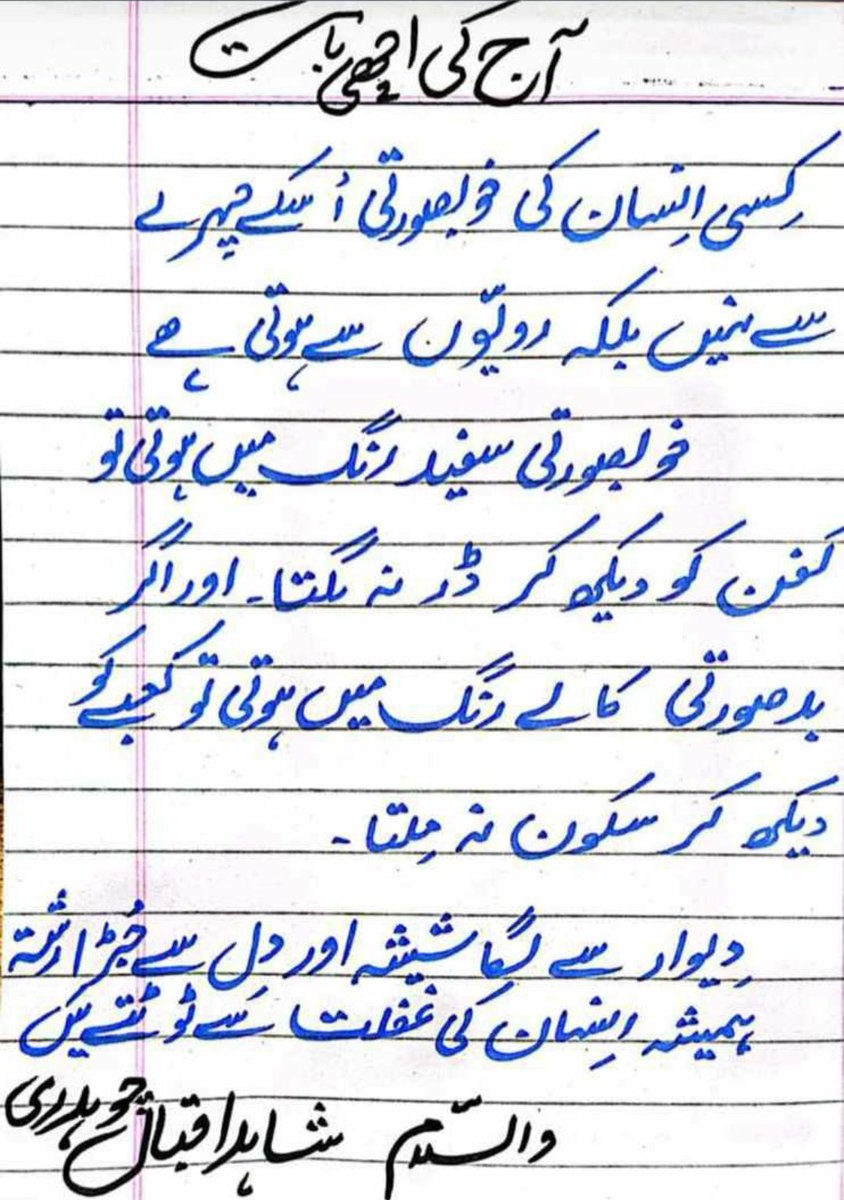 آج کی اچھی بات
کِسی اِنسان کی خوبصورتی اُسکے چہرے
سے نہیں بلکہ رویّوں سے ہوتی ہے
خوبصورتی سفید رنگ میں ہوتی تو
کفن کو دیکھ کر ڈر نہ لگتا۔ اور اگر
بدصورتی کالے رنگ میں ہوتی تو کعبے کو
دیکھ کر سکون نہ مِلتا۔
دِیوار سے لگا شیشہ اور دِل سے جُڑا رشتہ
ہمیشہ اِنسان کی غفلت سے ٹوٹتے ہیں
والسّلام شاہد اقبال چوہدری